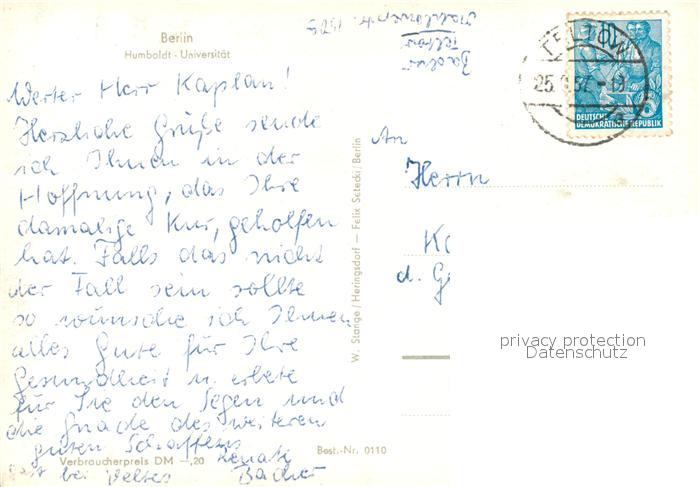 Berlin
Humboldt - Universität
Werter Herr Kaplan!
Herzliche Grüße sende
ich Ihnen in der
Hoffnung, das Ihre
damalige Kur, geholfen
hat. Falls das nicht
der Fall sein sollte
so wünsche ich Ihnen
alles Gute für Ihre
Gesundheit u. erbete
für Sie den Segen und
die Gnade des weiteren
guten Schaffens
Renate
bei Veltes Bacher
Verbraucherpreis DM —,20
Best.-Nr. 0110
W. Stange / Heringsdorf — Felix Setecki / Berlin
Bacher
Teltow
TELTOW
25. 57.-19
DEUTSCHE
DEMOKRATISCHE REPUBLIK
An
Herrn
K
d. G
privacy protection
Datenschutz